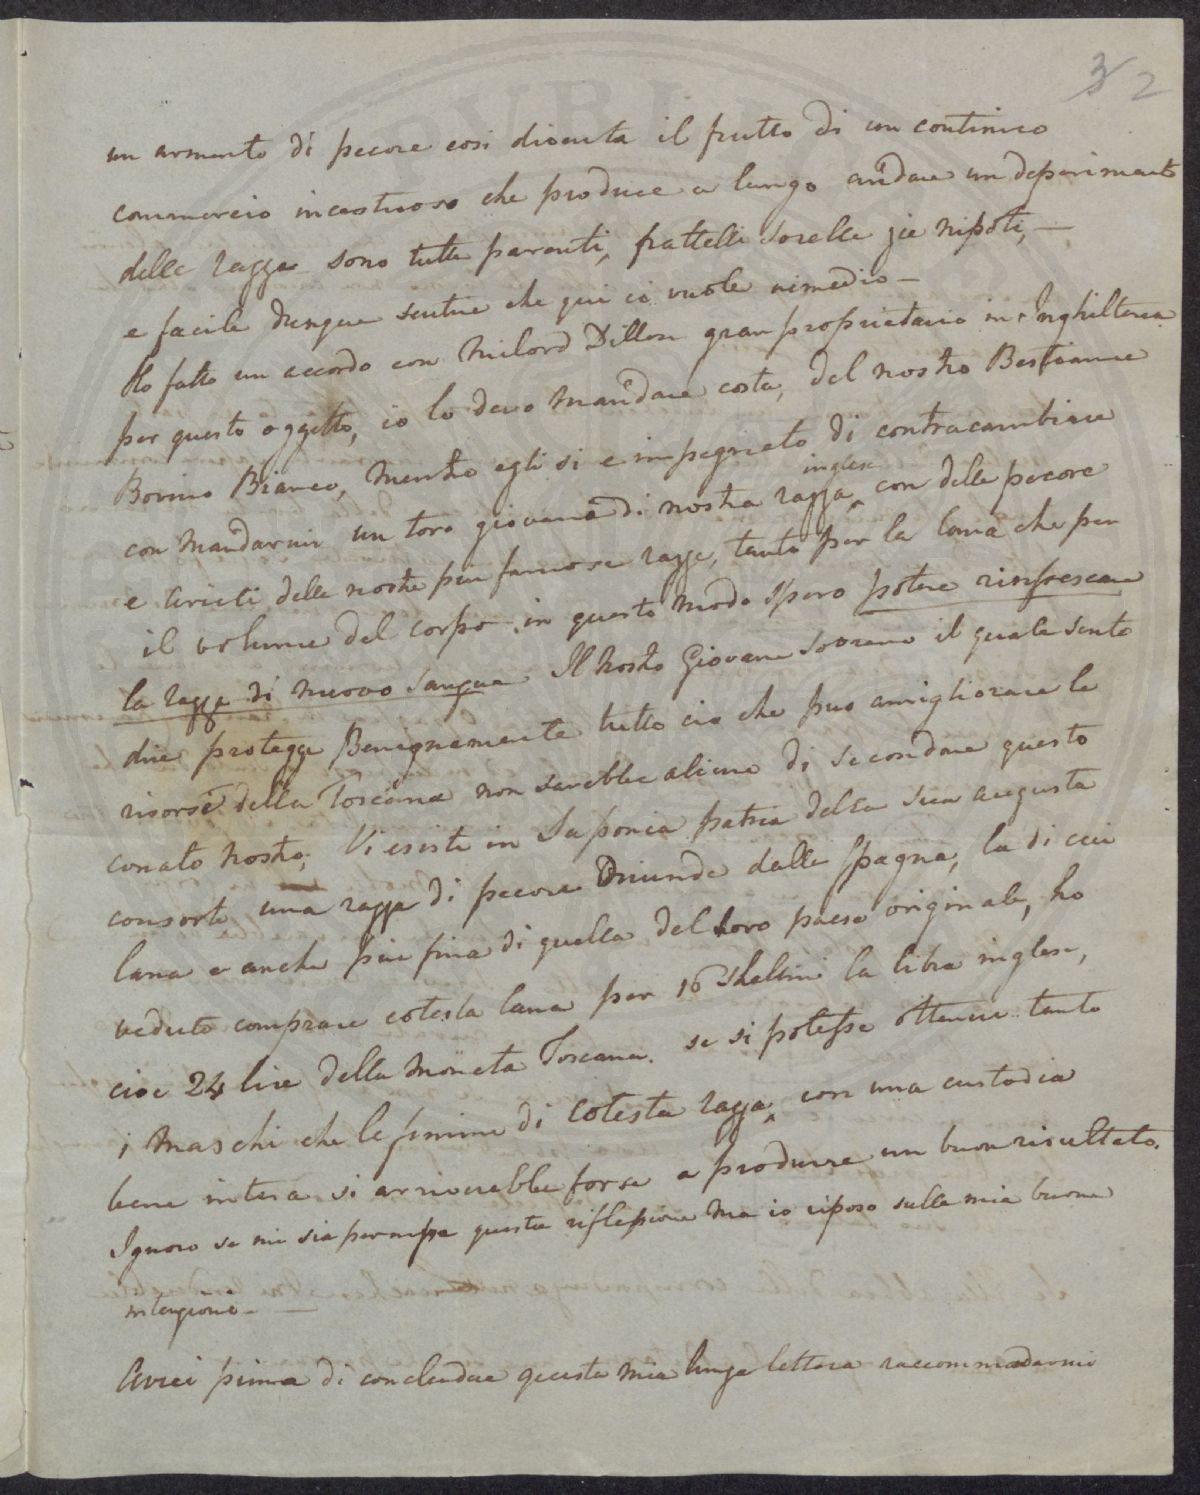 3 2
un armento di pecore cosi diventa il frutto di un continuo
commercio incestuoso che produce a lungo andare un deperimento
delle razze sono tutte parenti, frattelli sorelle zie nipoti, —
e facile dunque sentire che qui ci vuole rimedio —
Ho fatto un accordo con Milord Dillon gran proprietario in Inghilterra
per questo oggetto, io lo devo mandare costa, del nostro Bestiame
Bovino Bianco, mentre egli si e impegnato di contracambiare
con mandarmi un toro giovane di nostra razza inglese con delle pecore
e arieti delle nostre piu famose razze, tanto per la lana che per
il volume del corpo in questo modo spero potere rinfrescare
la razza di nuovo sangue. Il nostro Giovane sovrano il quale sento
dire protegge Benignamente tutto cio che puo amigliorare le
risorse della Toscana non sarebbe alieno di secondare questo
conato nostro, Vi esiste in Saponia patria della sua augusta
consorte una razza di pecore Oriunde dalla Spagna, la di cui
lana e anche piu fina di quella del loro paese originale, ho
veduto comprare cotesta lana per 16 Shellini la libra inglese,
cioe 24 lire della moneta Toscana. se si potesse ottenere tanto
i maschi che le femine di cotesta razza con una custodia
bene intesa si arriverebbe forse a produrre un buon risultato.
Ignoro se mi sia permessa questa riflessione ma io riposo sulla mia buona
intenzione —
Avrei prima di concludere questa mia lunga lettera raccommandarmi